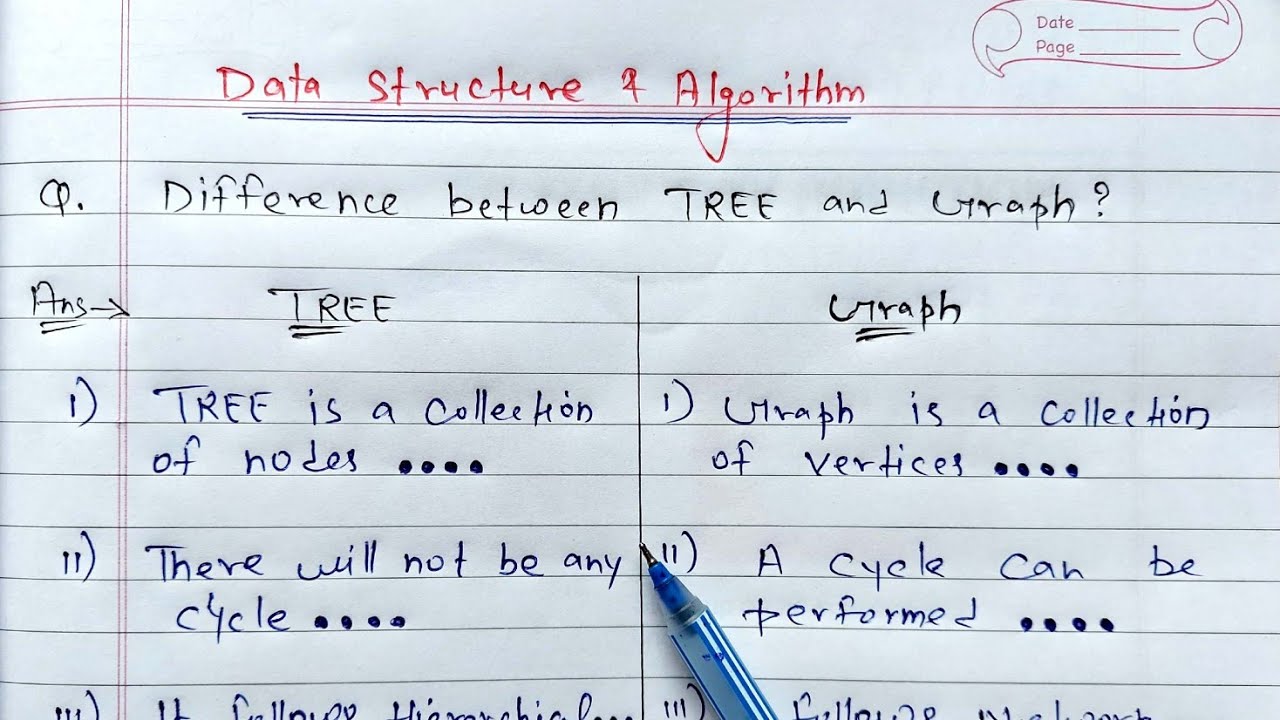 Date
Page
Data Structure & Algorithm
Q. Difference between TREE and Graph?
Ans→ TREE
Graph
i) TREE is a collection
of nodes ....
ii) There will not be any
cycle ....
iii) It follows Hierarchial...
i) Graph is a collection
of vertices ....
ii) A cycle can be
performed ....
iii) Follows Network